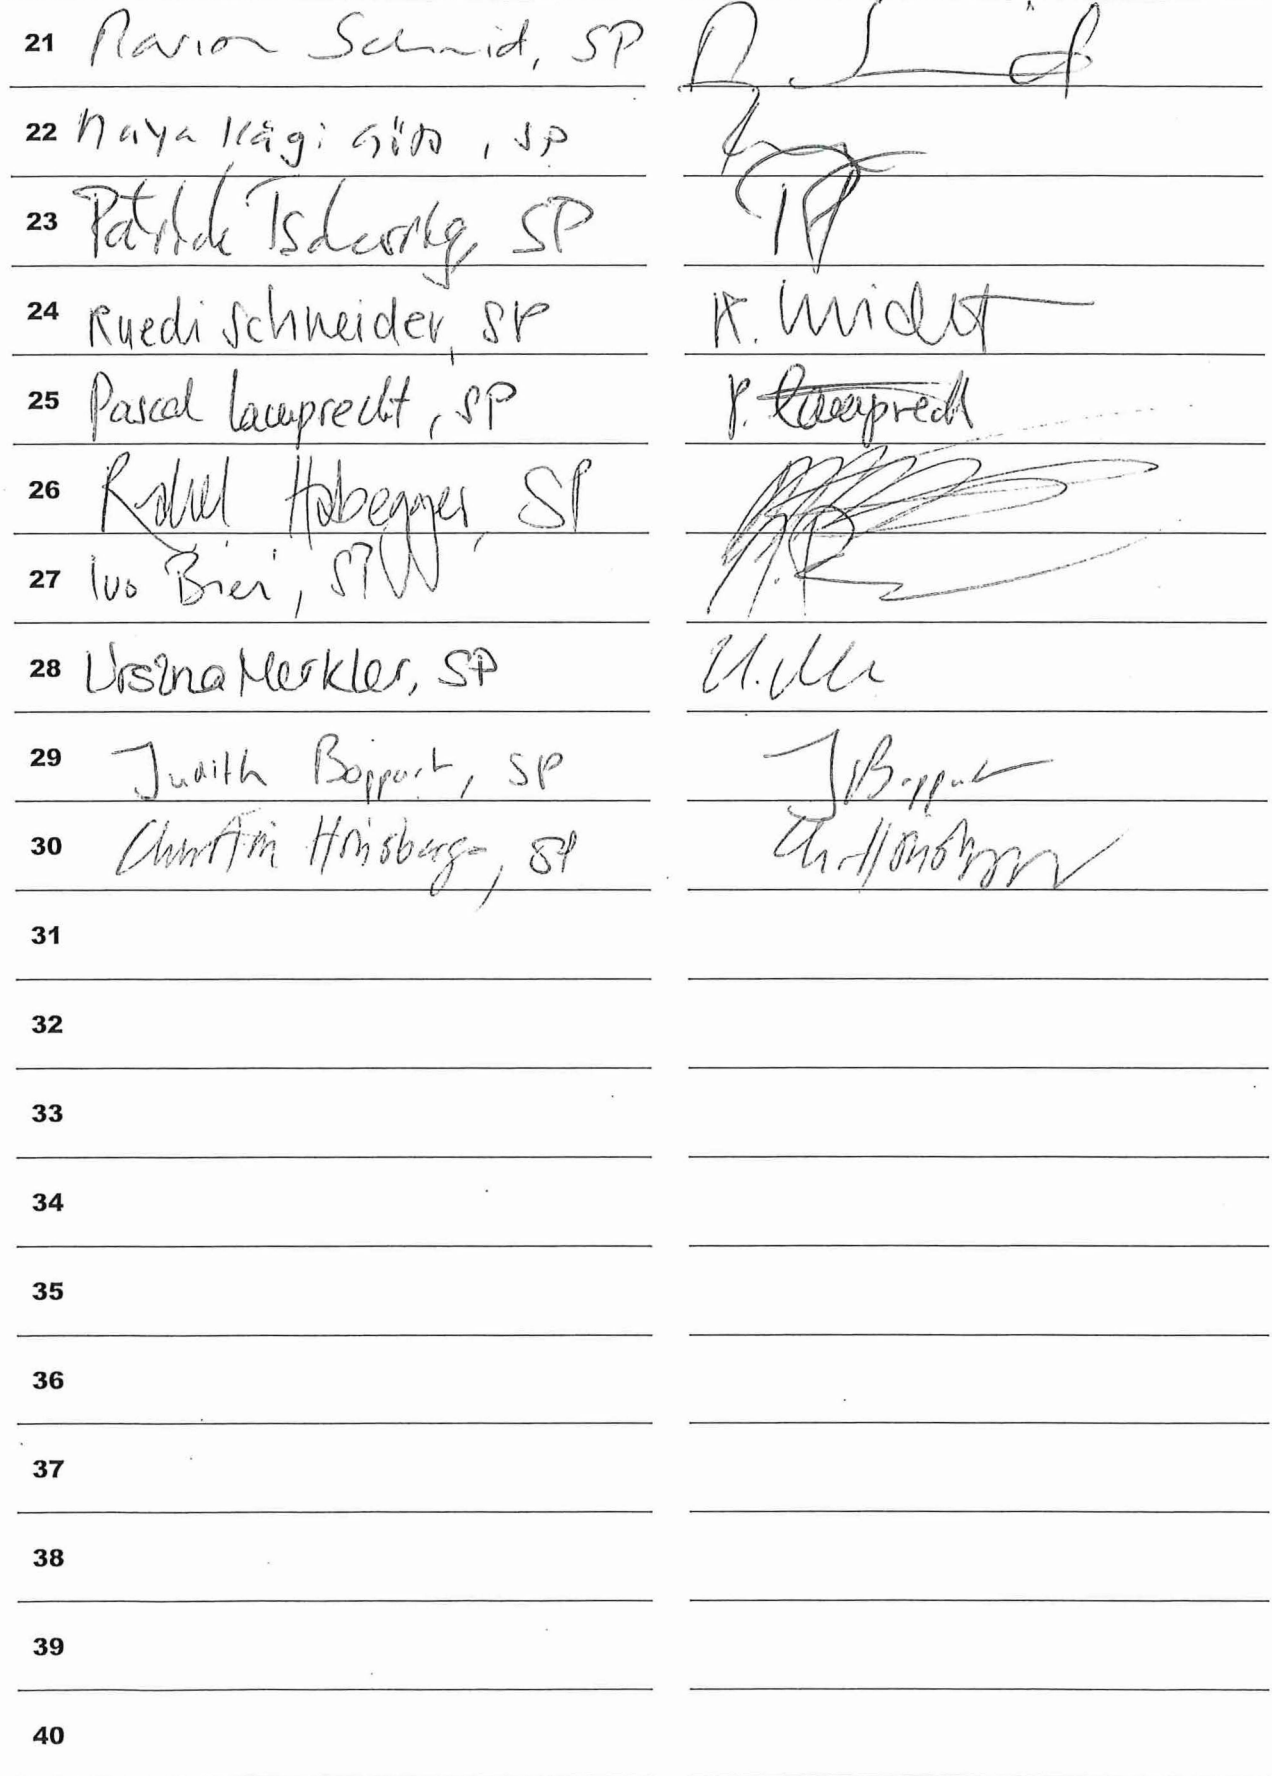 21 Marion Schmid, SP
22 Maya Kägi Götz, SP
23 Patrick Tscherrig, SP
24 Ruedi Schneider, SP R. Schneider
25 Pascal Lamprecht, SP P. Lamprecht
26 Rahel Habegger, SP
27 Ivo Bieri, SP
28 Ursina Merkler, SP
29 Judith Boppart, SP J. Boppart
30 Christina Horisberger, SP Ch. Horisberger
31
32
33
34
35
36
37
38
39
40